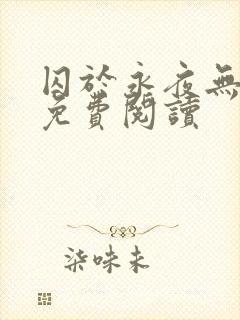 囚於永夜無
免費閱讀
柒味未